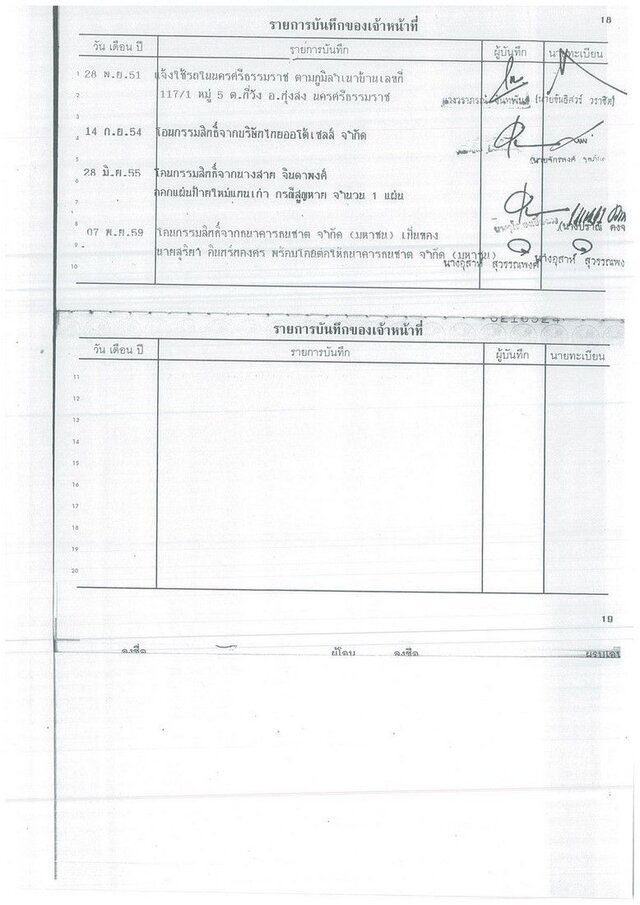 18
รายการบันทึกของเจ้าหน้าที่
วัน เดือน ปี รายการบันทึก ผู้บันทึก นายทะเบียน
1 28 พ.ย.51 แจ้งใช้รถในนครศรีธรรมราช ตามภูมิลำเนาบ้านเลขที่
2 117/1 หมู่ 5 ต.ที่วัง อ.ทุ่งสง นครศรีธรรมราช
14 ก.ย.54 โอนกรรมสิทธิ์จากบริษัทไทยออโต้เซลส์ จำกัด
28 มิ.ย.55 โอนกรรมสิทธิ์จากนางสาย จินดาพงศ์
ออกแผ่นป้ายใหม่แทนเก่า กรณีสูญหาย จำนวน 1 แผ่น
07 พ.ย.59 โอนกรรมสิทธิ์จากธนาคารธนชาต จำกัด (มหาชน) เป็นของ
9 นายสุริยา อินทร์ทองคร พร้อมโอนต่อให้ธนาคารธนชาต จำกัด (มหาชน)
10 นางอุสาห์ สุวรรณพงศ์ นางอุสาห์ สุวรรณพง
รายการบันทึกของเจ้าหน้าที่
วัน เดือน ปี รายการบันทึก ผู้บันทึก นายทะเบียน
11
12
13
14
15
16
17
18
19
20
19
ลงชื่อ ผู้โอน ลงชื่อ